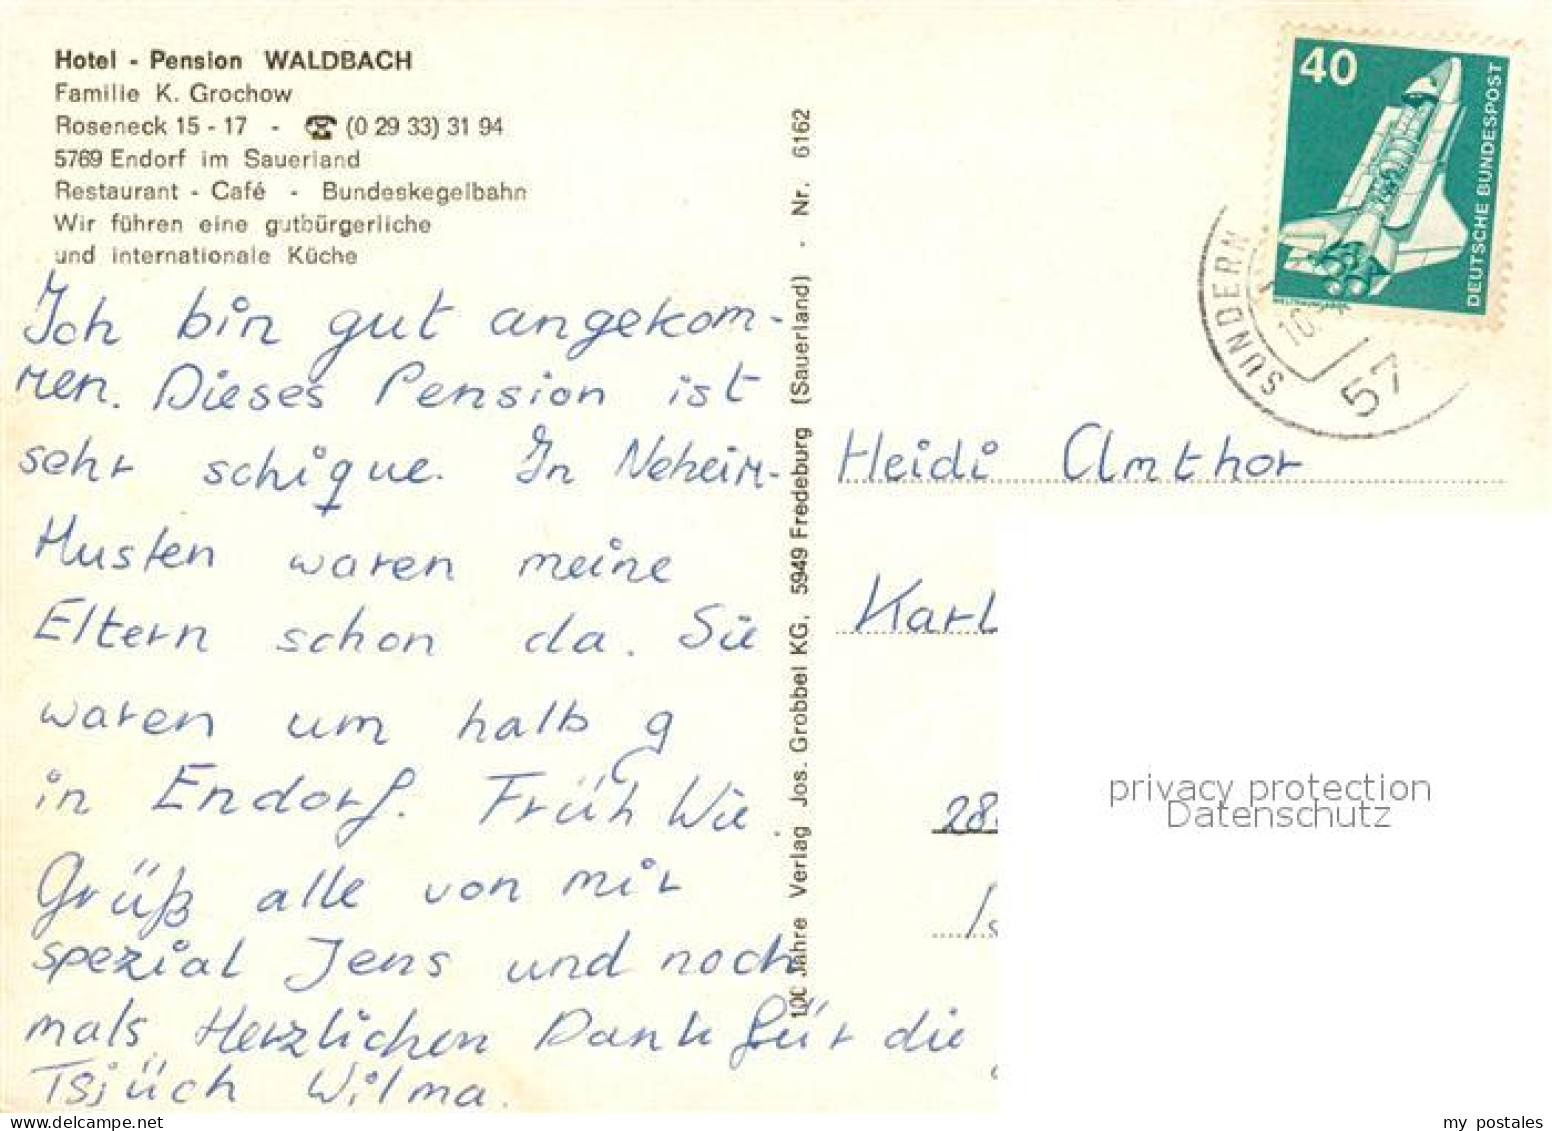 Hotel - Pension WALDBACH
Familie K. Grochow
Roseneck 15 - 17 - ☎ (0 29 33) 31 94
5769 Endorf im Sauerland
Restaurant - Café - Bundeskegelbahn
Wir führen eine gutbürgerliche
und internationale Küche
Ich bin gut angekom-
men. Dieses Pension ist
sehr schique. In Neheim-
Husten waren meine
Eltern schon da. Sie
waren um halb 9
in Endorf. Früh Wie.
Grüß alle von mir
spezial Jens und noch
mals Herzlichen Dank für die
Tsjüch Wilma.
100 Jahre Verlag Jos. Grobbel KG, 5949 Fredeburg (Sauerland) · Nr. 6162
40
DEUTSCHE BUNDESPOST
SUNDERN
57
Heidi Amthor
Karl
28
privacy protection
Datenschutz
my postales